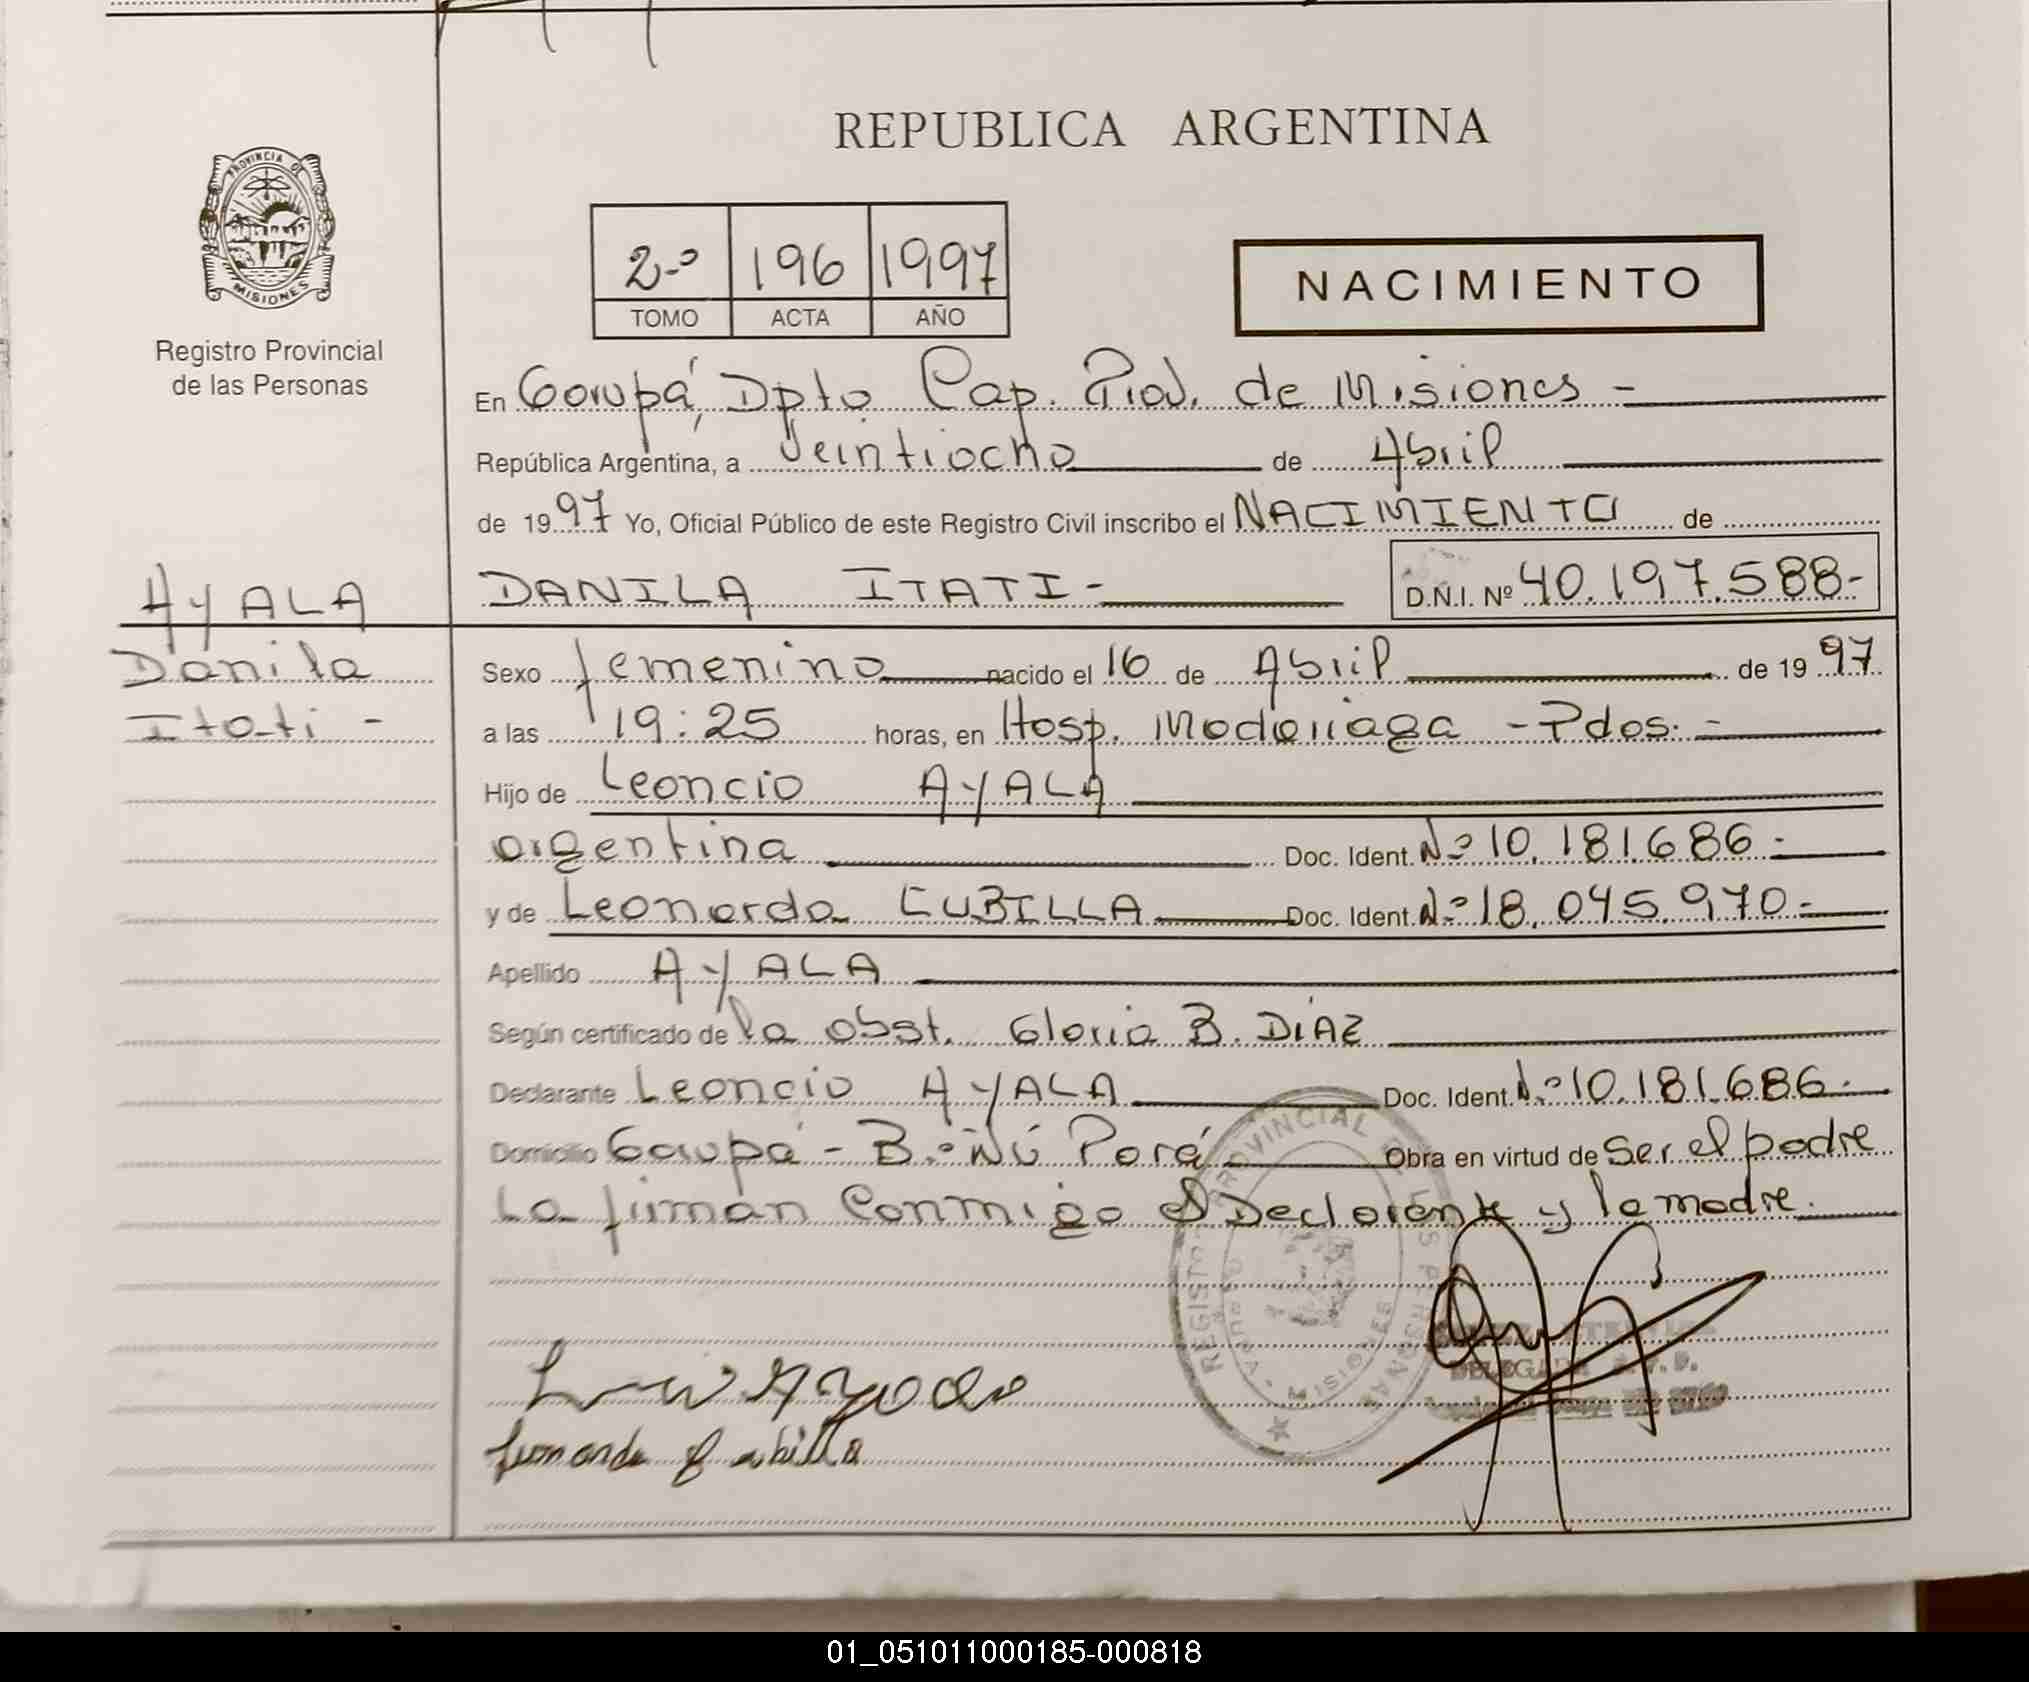 REPUBLICA ARGENTINA
PROVINCIA DE
MISIONES
Registro Provincial
de las Personas
2º 196 1997
TOMO ACTA AÑO
NACIMIENTO
En Garupá, Dpto Cap. Prov. de Misiones -
República Argentina, a veintiocho de Abril
de 1997 Yo, Oficial Público de este Registro Civil inscribo el NACIMIENTO de
DANILA ITATI - D.N.I. Nº 40.197.588-
AYALA
Danila
Itati -
Sexo femenino nacido el 16 de Abril de 1997
a las 19:25 horas, en Hosp. Madariaga - Pdas. -
Hijo de Leoncio AYALA
argentina Doc. Ident. Nº 10.181.686.-
y de Leonarda CUBILLA Doc. Ident. Nº 18.045.970.-
Apellido AYALA
Según certificado de la obst. Gloria B. DÍAZ
Declarante Leoncio AYALA Doc. Ident. Nº 10.181.686.-
Domicilio Garupá - Bº Ñú Porá Obra en virtud de Ser el padre
La firman Conmigo el Declarante y la madre.
REGISTRO PROVINCIAL DE LAS PERSONAS
MISIONES
DELEGADA
01_051011000185-000818